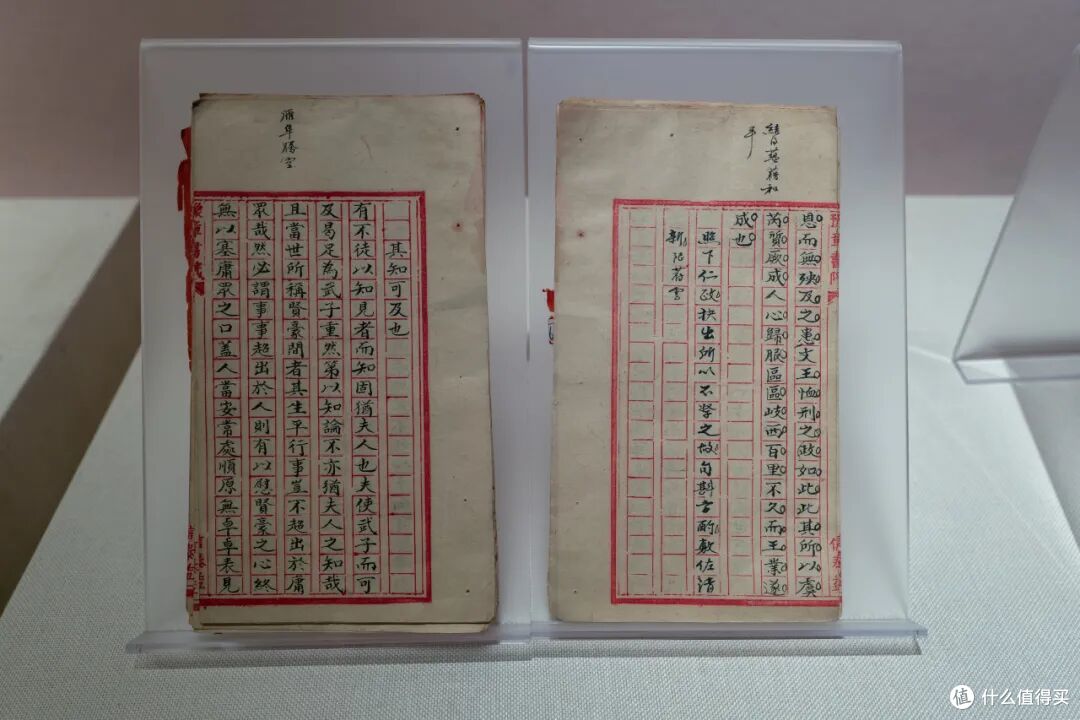 其知可及也
有不徒以知見者而知固猶夫人也夫使武子而可
及曷足為武子重然第以知論不亦猶夫人之知哉
且當世所稱賢豪間者其生平行事豈不超出於庸
眾哉然必謂事事超出於人則有以慰賢豪之心終
無以塞庸眾之口蓋人當安常處順原無卓卓表見
結句蘊藉和
平
恩而無殃及之患文王恤刑之政如此此其所以虞
芮質厥成人心歸服區區岐西百里不久而王業遂
成也
照下仁政抉出所以不孥之故句斟字酌敷佐清
新
值 什么值得买